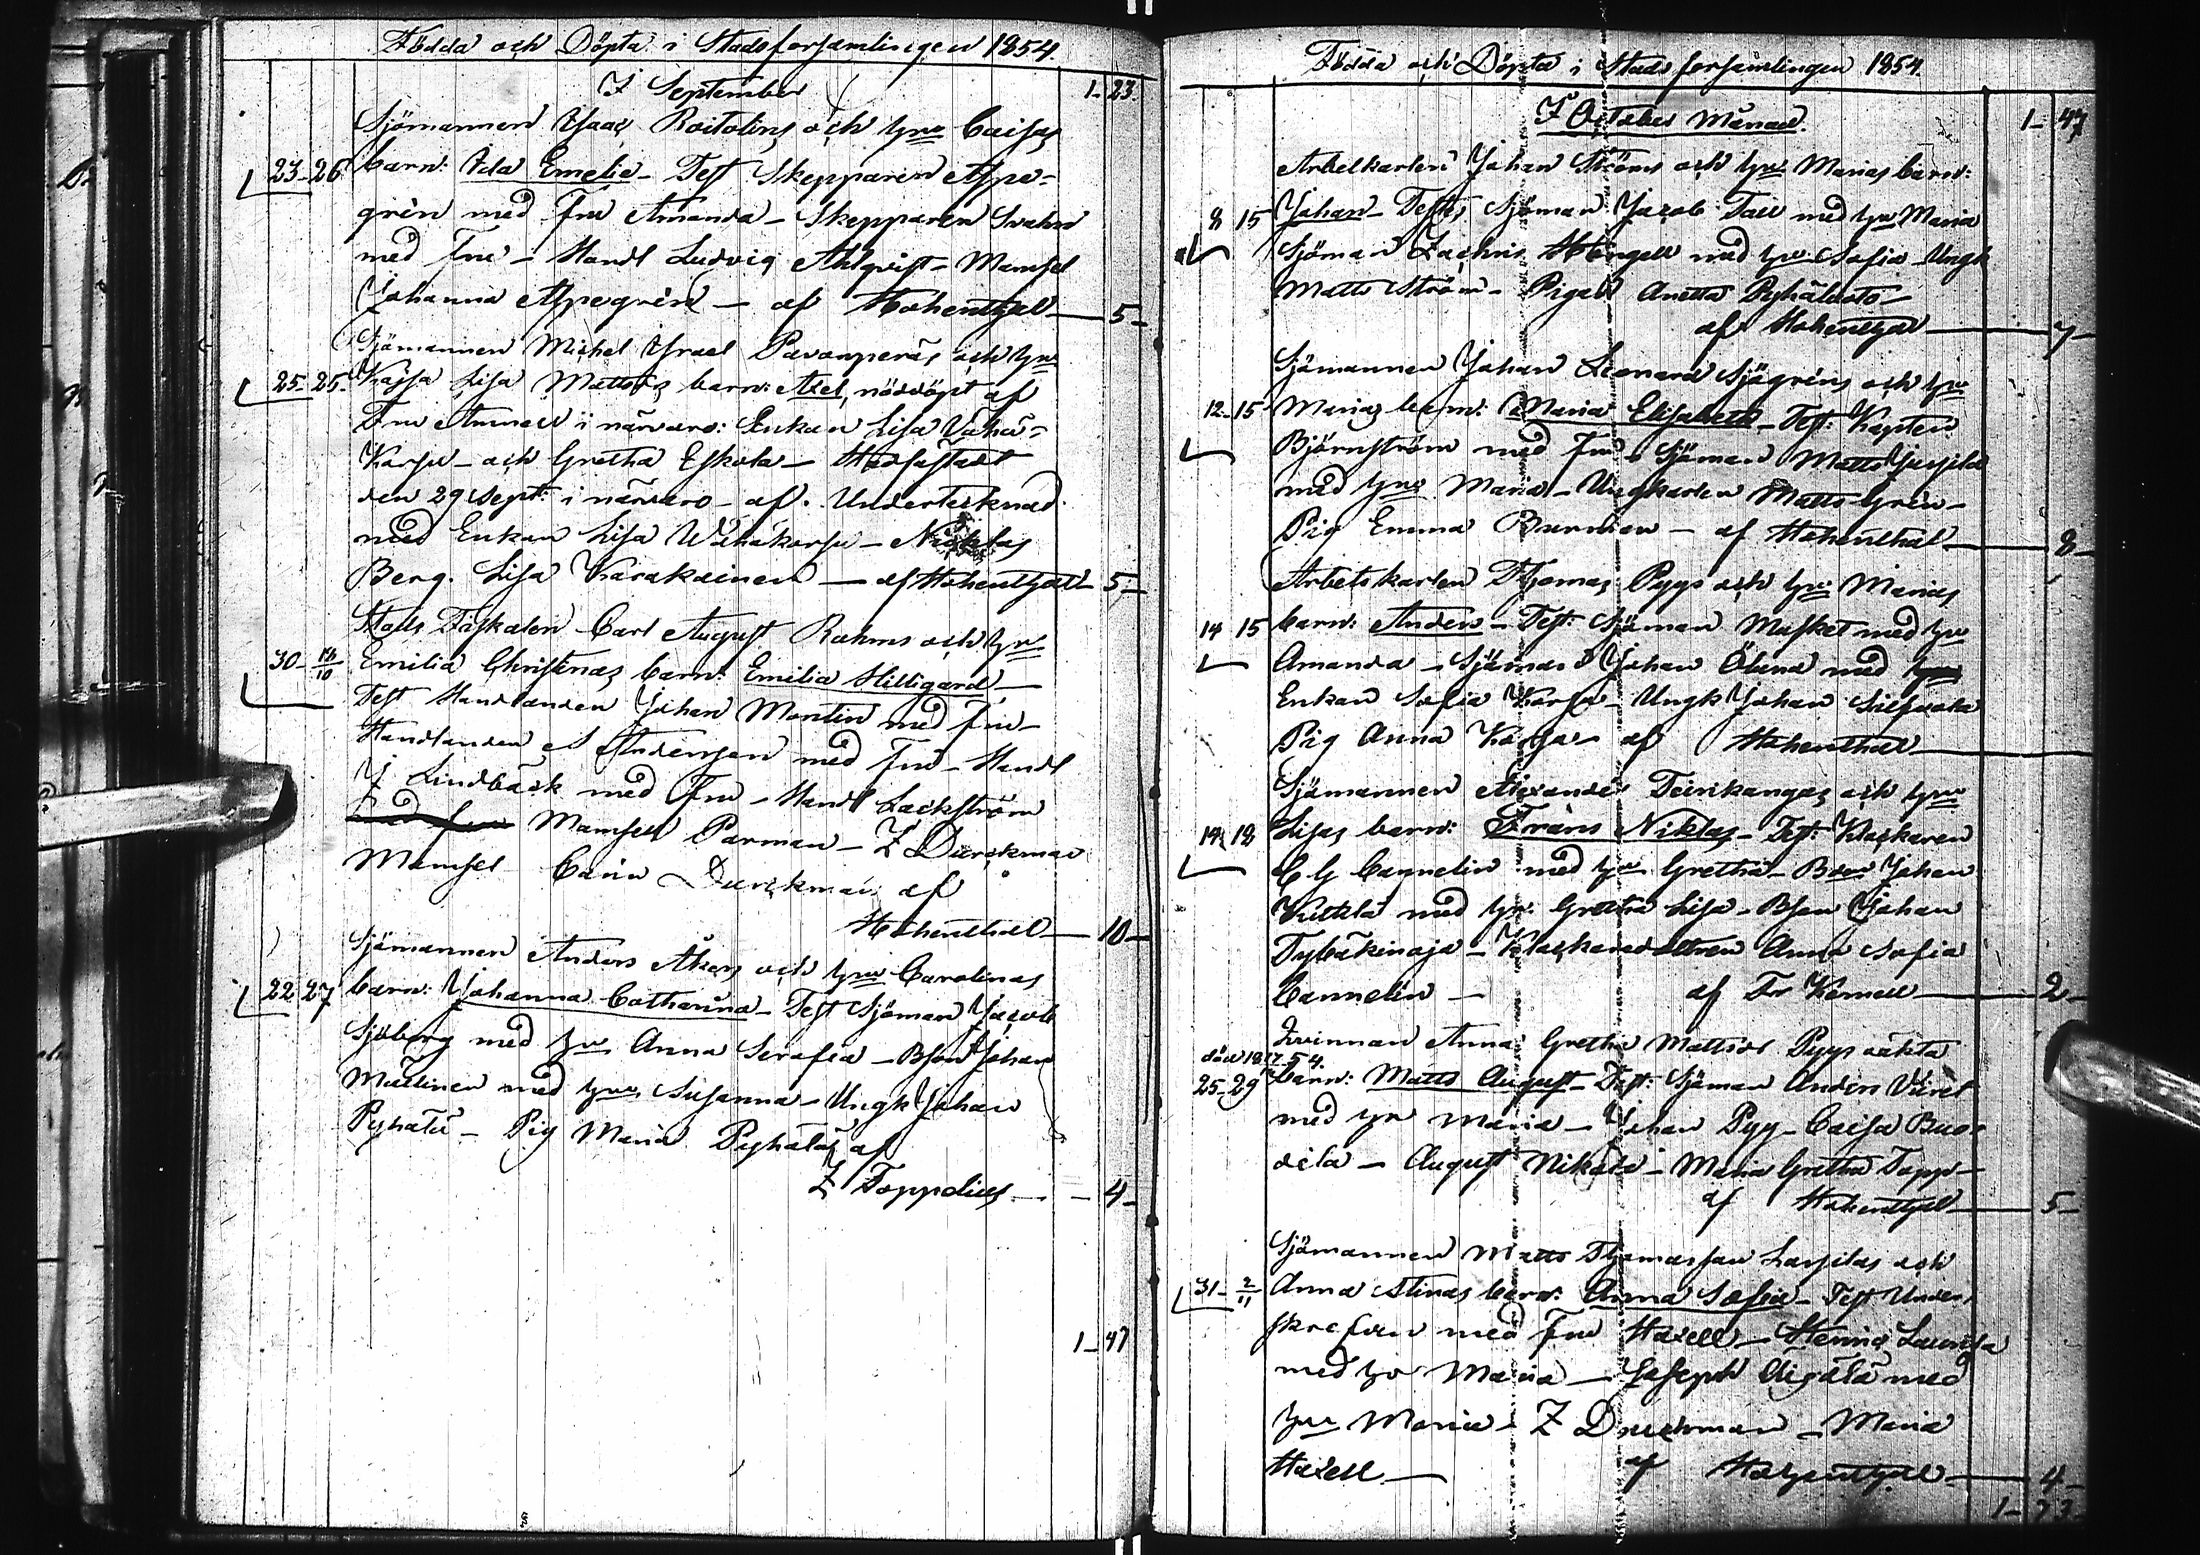 Födda och Döpta i Stadsforsamlingen 1854.
I September
1-23.
Sjömannen Isaac Roitolins och hru Caisas
23-26 barn: Ida Emelie - Test Skepparen Aspe-
grén med Fru Amanda - Skepparen Svahn
med Fru - Handl Ludvig Ahlqvist - Mamsel
Johanna Aspegrén - af Hohenthal - 5 -
Sjömannen Michel Israel Pavonperäs och hru
25-25. Kajsa Lisa Mattsds barn: Axel, nöddöpt af
Fru i närvaro: Enkan Lisa Vähä-
Karju - och Gretha Eskola -
den 29 Sept: i närvaro - af. Undertecknad
med Enkan Lisa Wähäkarju - Nicklas
Berg. Lisa Karakainen - af Hohenthal - 5 -
Stads Fiskalen Carl August Rahms och hru
30 - 16/10 Emilia Christinas barn: Emilia Hilligard -
Test Handlanden Johan Montin med Fru -
Handlanden A Andersen med Fru - Handl
J Lindbäck med Fru - Handl Lackström
med fru Mamsell Parman - Z Durckman
Mamsel Carin Durckman af
Hohenthal - 10 -
Sjömannen Anders Åkers och hru Carolinas
22 27 barn: Johanna Catharina - Test Sjöman Jacob
Sjöberg med hru Anna Serafia - Bson Johan
Matinen med hru Susanna - Ungk Johan
Pyhälä - Pig Maria Pyhälä af
Z Toppelius - 4 -
1-47
Födda och Döpta i Stadsforsamlingen 1854.
I October Månad.
1-47
Arbetkarlen Johan Ströms och hru Marias barn:
8 15 Johan - Test: Sjöman Jacob Tall med hru Maria
Sjöman Zachris Hengell med hru Sofia - Ungk
Matts Ström - Pigan Anetta
af Hohenthal - 7 -
Sjömannen Johan Leonard Sjögréns och hru
12-15 Marias barn: Maria Elisabeth - Test: Kapten
Björnström med Fru - Sjöman Matts
med hru Maria - Ungkarlen Matts Grén -
Pig Emma - af Hohenthal - 8 -
Arbetskarlen Thomas Pyys och hru Marias
14 15 barn: Anders - Test: Sjöman Masket med hru
Amanda - Sjöman Johan med hru
Enkan Sofia Karju - Ungk Johan
Pig Anna Karju - af Hohenthal -
Sjömannen Alexander Teirikangas och hru
14 18 Lisas barn: Frans Niklas - Test: Klockaren
C G Cannelin med hru Gretha - Bson Johan
Kittilä med hru Gretha Lisa - Bson Johan
Typäkinoja - Klockaredottren Anna Sofia
Cannelin - af Fr Kemell - 2 -
Qvinnan Anna Gretha Mattsdr Pyys oäkta
död 18 12 54.
25-29 barn: Matts August - Test: Sjöman Anders
med hru Maria - Johan Pyy - Caisa Buo-
dila - August Nikula - Maria Gretha Topp -
af Hohenthal - 5 -
Sjömannen Matts Thomasson Lassilas och
31 - 2/11 Anna Stinas barn: Anna Sofia - Test Under-
skrefven med Fru Haxell - Laurila
med hru Maria - Joseph Aijälä med
hru Maria - Z Durchman - Maria
Haxell - af Hohenthal - 4 -
1-73